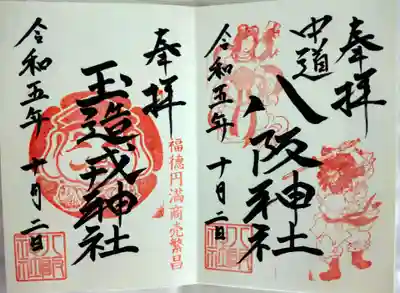 奉拝
中道
八阪神社
令和五年十月二日
奉拝
福徳円満商売繁昌
玉造戎神社
令和五年十月二日